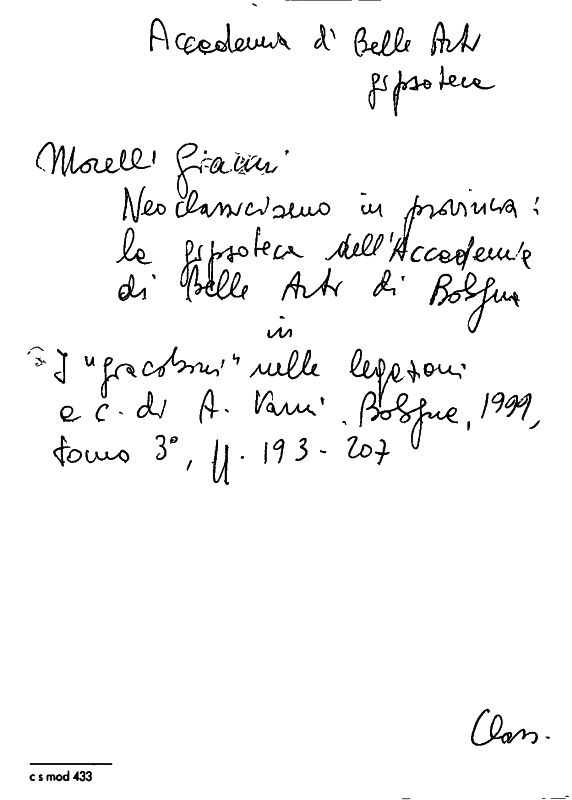 Accademia di Belle Arti
gipsoteca
Morelli Gianni
Neoclassicismo in provincia:
la gipsoteca dell'Accademia
di Belle Arti di Bologna
in
I "giacobini" nelle legazioni
a c. di A. Varni. Bologna, 1999,
tomo 3°, pp. 193-207
Class.
c s mod 433